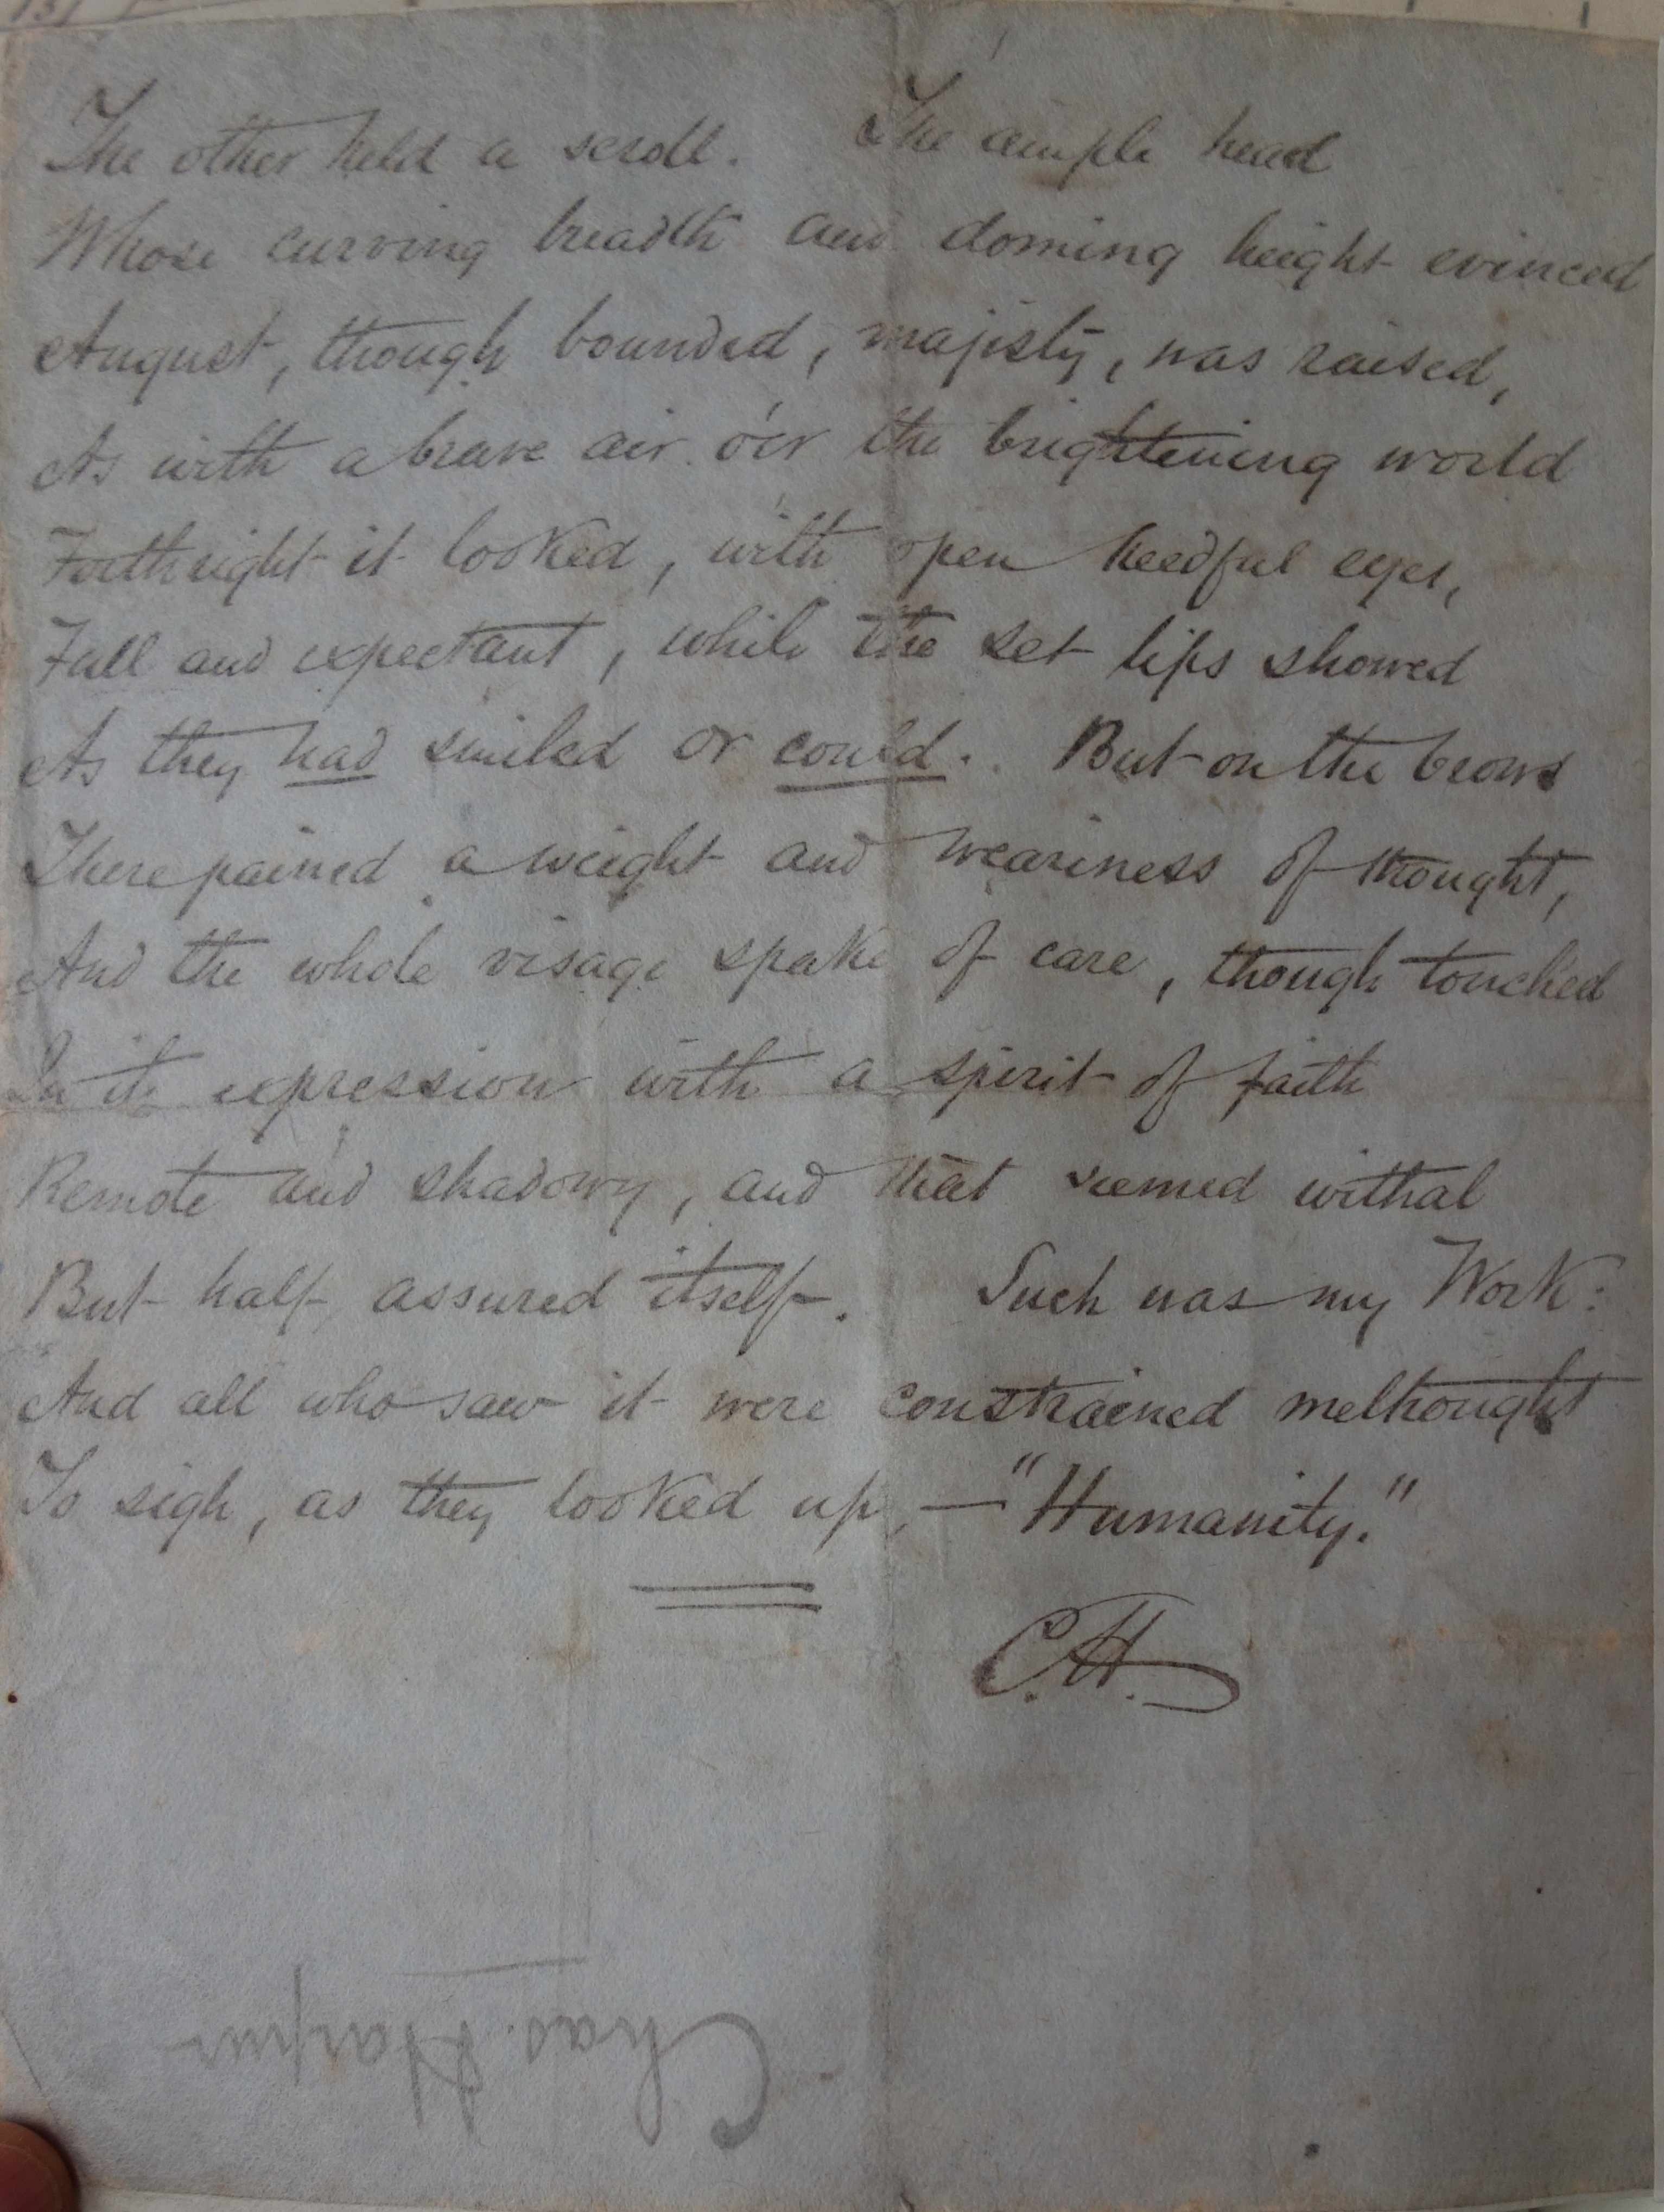 The other held a scroll. The ample head
Whose curving breadth and doming height evinced
August, though bounded, majisty, was raised,
As with a brave air o'er the brightening world
Forthright it looked, with open heedful eyes,
Full and expectant, while the set lips showed
As they had smiled or could. But on the brows
There pained a weight and weariness of thought,
And the whole visage spake of care, though touched
In its expression with a spirit of faith
Remote and shadowy, and that seemed withal
But half assured itself. Such was my Work:
And all who saw it were constrained methought
To sigh, as they looked up, — "Humanity."
C.H.
Chas. Harpur